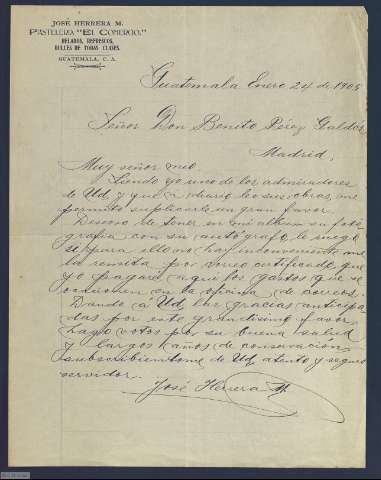 JOSÉ HERRERA M.
PASTELERIA "El COMERCIO."
HELADOS, REFRESCOS,
DULCES DE TODAS CLASES.
GUATEMALA, C. A.
Guatemala Enero 24 de 1905
Señor Don Benito Pérez Galdós
Madrid,
Muy señor mio
Siendo yo uno de los admiradores
de Ud y que á diario leo sus obras, me
permito suplicarle un gran favor.
Deseoso de tener en mi album su foto
grafia con su autógrafo, le ruego
si para ello no hay inconveniente me
la remita por correo certificado, que
yo pagaré aqui los gastos que se
ocasionen en la oficina de correos.
Dando á Ud las gracias anticipa
das por este grandisimo favor
hago votos por su buena salud
y largos años de conservación
subscribiendome de Ud atento y seguro
servidor.
José Herrera M.